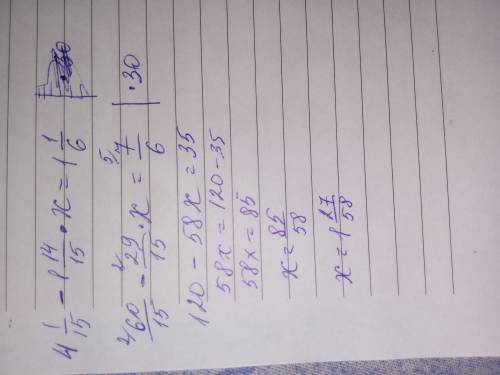 4 1/15 - 1 14/15 · x = 1 1/6
²/ 60/15 - ²/ 29/15 · x = ⁵/ 7/6 | · 30
120 - 58x = 35
58x = 120 - 35
58x = 85
x = 85/58
x = 1 27/58